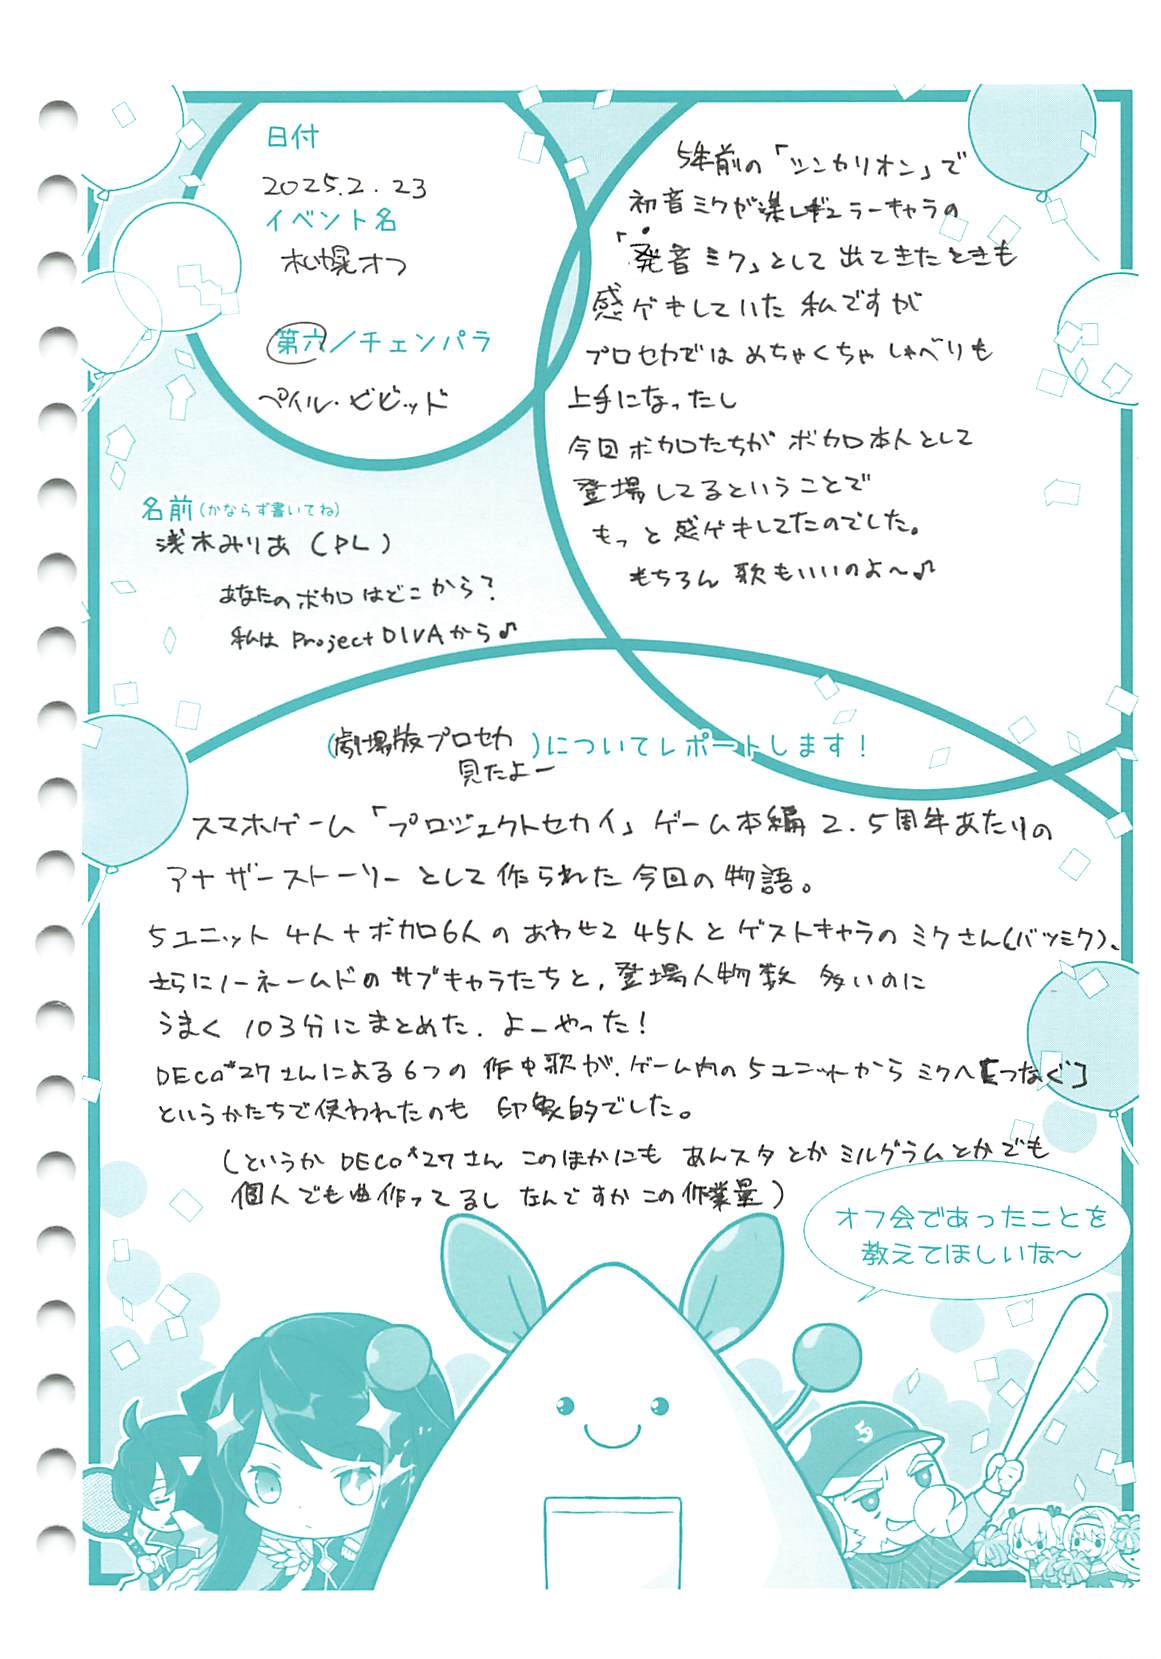 日付
2025.2.23
イベント名
札幌オフ
第六/チェンパラ
ペイル・ビビッド
名前(かならず書いてね)
浅木みりあ(PL)
あなたのボカロはどこから?
私は Project DIVAから♪
5年前の「シンカリオン」で
初音ミクが準レギュラーキャラの
「発音ミク」として出てきたときも
感ゲキしていた私ですが
プロセカではめちゃくちゃしゃべりも
上手になったし
今回ボカロたちがボカロ本人として
登場してるということで
もっと感ゲキしてたのでした。
もちろん歌もいいのよ〜♪
(劇場版プロセカ
見たよー
)についてレポートします!
スマホゲーム「プロジェクトセカイ」ゲーム本編2.5周年あたりの
アナザーストーリーとして作られた今回の物語。
5ユニット4人+ボカロ6人のあわせて45人とゲストキャラのミクさん(バツミク)、
さらにノーネームドのサブキャラたちと、登場人物数多いのに
うまく103分にまとめた。よーやった!
DECO*27さんによる6つの作中歌が、ゲーム内の5ユニットからミクへ[つなぐ]
というかたちで使われたのも印象的でした。
(というかDECO*27さんこのほかにもあんスタとかミルグラムとかでも
個人でも曲作ってるしなんですかこの作業量)
オフ会であったことを
教えてほしいな〜